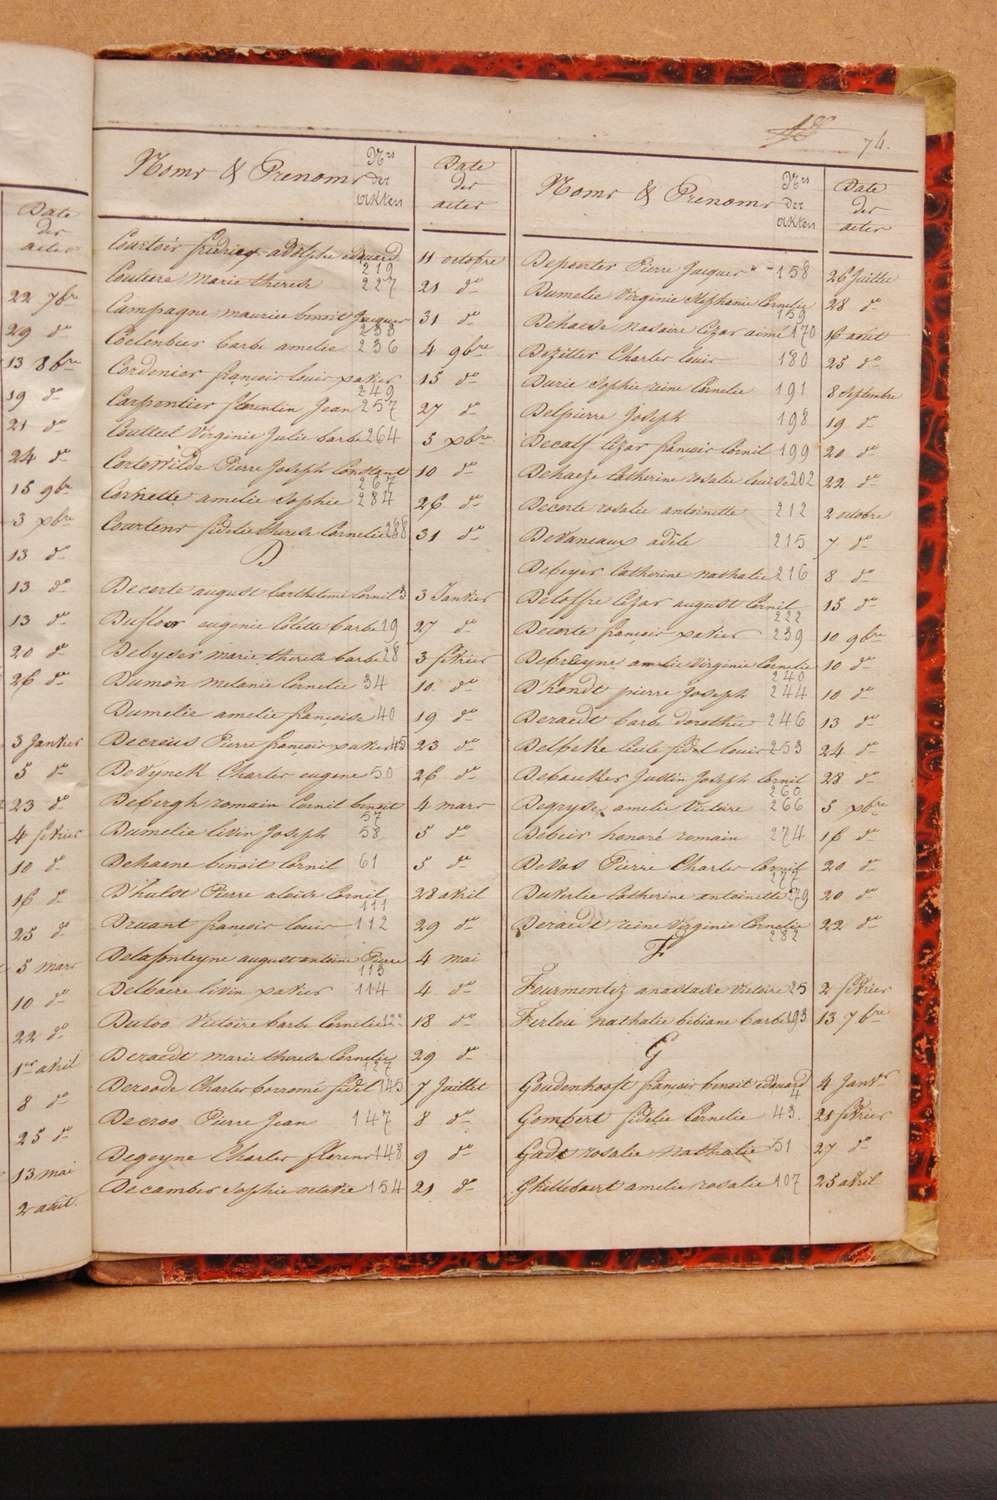 74.
Date
des
actes
22 7bre
29 do
13 8bre
19 do
21 do
24 do
15 9bre
3 xbre
13 do
13 do
13 do
20 do
26 do
3 Janvier
5 do
23 do
4 fevrier
10 do
16 do
25 do
5 mars
10 do
22 do
1er avril
8 do
25 do
13 mai
2 aout.
Noms & Prenoms Nrs des Akten Date des actes
Courtois frédric adolphe edouard 219 11 octobre
Coutere marie therese 227 21 do
Campagne maurice benoit Jacques 233 31 do
Coelenbier barbe amelie 236 4 9bre
Cordenier françois louis xavier 249 15 do
Carpentier florentin Jean 257 27 do
Couttel Virginie Julie barbe 264 5 xbre
Costenilde Pierre Joseph Constant 267 10 do
Cornette amelie Sophie 284 26 do
Courtens fidelie therese Cornelie 288 31 do
D
Decorte august barthelemi Cornil 3 3 Janvier
Dufloer eugenie Colette barbe 19 27 do
Debyser marie therese barbe 28 3 fevrier
Dumon melanie Cornelie 34 10 do
Dumelie amelie françoise 40 19 do
Decroos Pierre françois xavier 45 23 do
Devynck Charles eugene 50 26 do
Debergh romain Cornil benoit 57 4 mars
Dumelie livin Joseph 58 5 do
Dehaene benoit Cornil 61 5 do
D'hulst Pierre aloïse Cornil 111 28 avril
Druant françois louis 112 29 do
Delafonteyne august antoine Pierre 113 4 mai
Delbaere livin xavier 114 4 do
Dutoo Victoire barbe Cornelie 18 do
Deraedt marie therese Cornelie 127 29 do
Deroode Charles borromé fidel 145 7 Juillet
Decroo Pierre Jean 147 8 do
Degeyne Charles florent 148 9 do
Decamber Sophie octavie 154 21 do
Noms & Prenoms Nrs des Akten Date des actes
Deporter Pierre Jacques 158 26 Juillet
Dumelie Virginie Stephanie Cornelie 159 28 do
Dehaese nazaire Cézar aimé 170 16 août
Dezitter Charles louis 180 25 do
Durie Sophie reine Cornelie 191 8 septembre
Delpierre Joseph 198 19 do
Decalf Cézar françois Cornil 199 20 do
Dehaeze Catherine rosalie louise 202 22 do
Decorte rosalie antoinette 212 2 octobre
Devaneaux adèle 215 7 do
Debeyer Catherine nathalie 216 8 do
Deloffre Cézar august Cornil 222 15 do
Decorte françois xavier 239 10 9bre
Debreyne amelie Virginie Cornelie 240 10 do
D'hondt pierre Joseph 244 10 do
Deraedt barbe dorothée 246 13 do
Delbeke Cecile fidel louis 253 24 do
Debeuker Justin Joseph Cornil 260 28 do
Degryse amelie Victoire 266 5 xbre
Debeir honoré romain 274 16 do
Devos Pierre Charles Cornil 277 20 do
Duverlie Catherine antoinette 279 20 do
Deraedt reine Virginie Cornelie 282 22 do
F
Feurmentez anastasie Victoire 25 2 fevrier
Ferlou nathalie bibiane barbe 193 13 7bre
G
Goudenhooft françois benoit edouard 4 4 Janvr
Gombert fidelie Cornelie 43. 21 fevrier
Gade rosalie nathalie 51 27 do
Ghillebaert amelie rosalie 107 25 avril